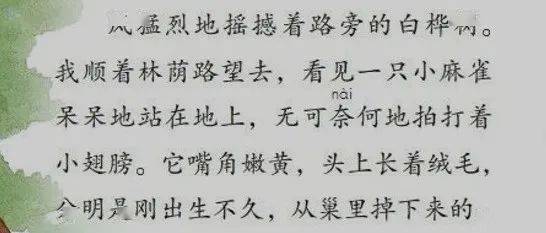 风猛烈地摇撼着路旁的白桦树。
我顺着林荫路望去，看见一只小麻雀
nài
呆呆地站在地上，无可奈何地拍打着
小翅膀。它嘴角嫩黄，头上长着绒毛，
分明是刚出生不久，从巢里掉下来的